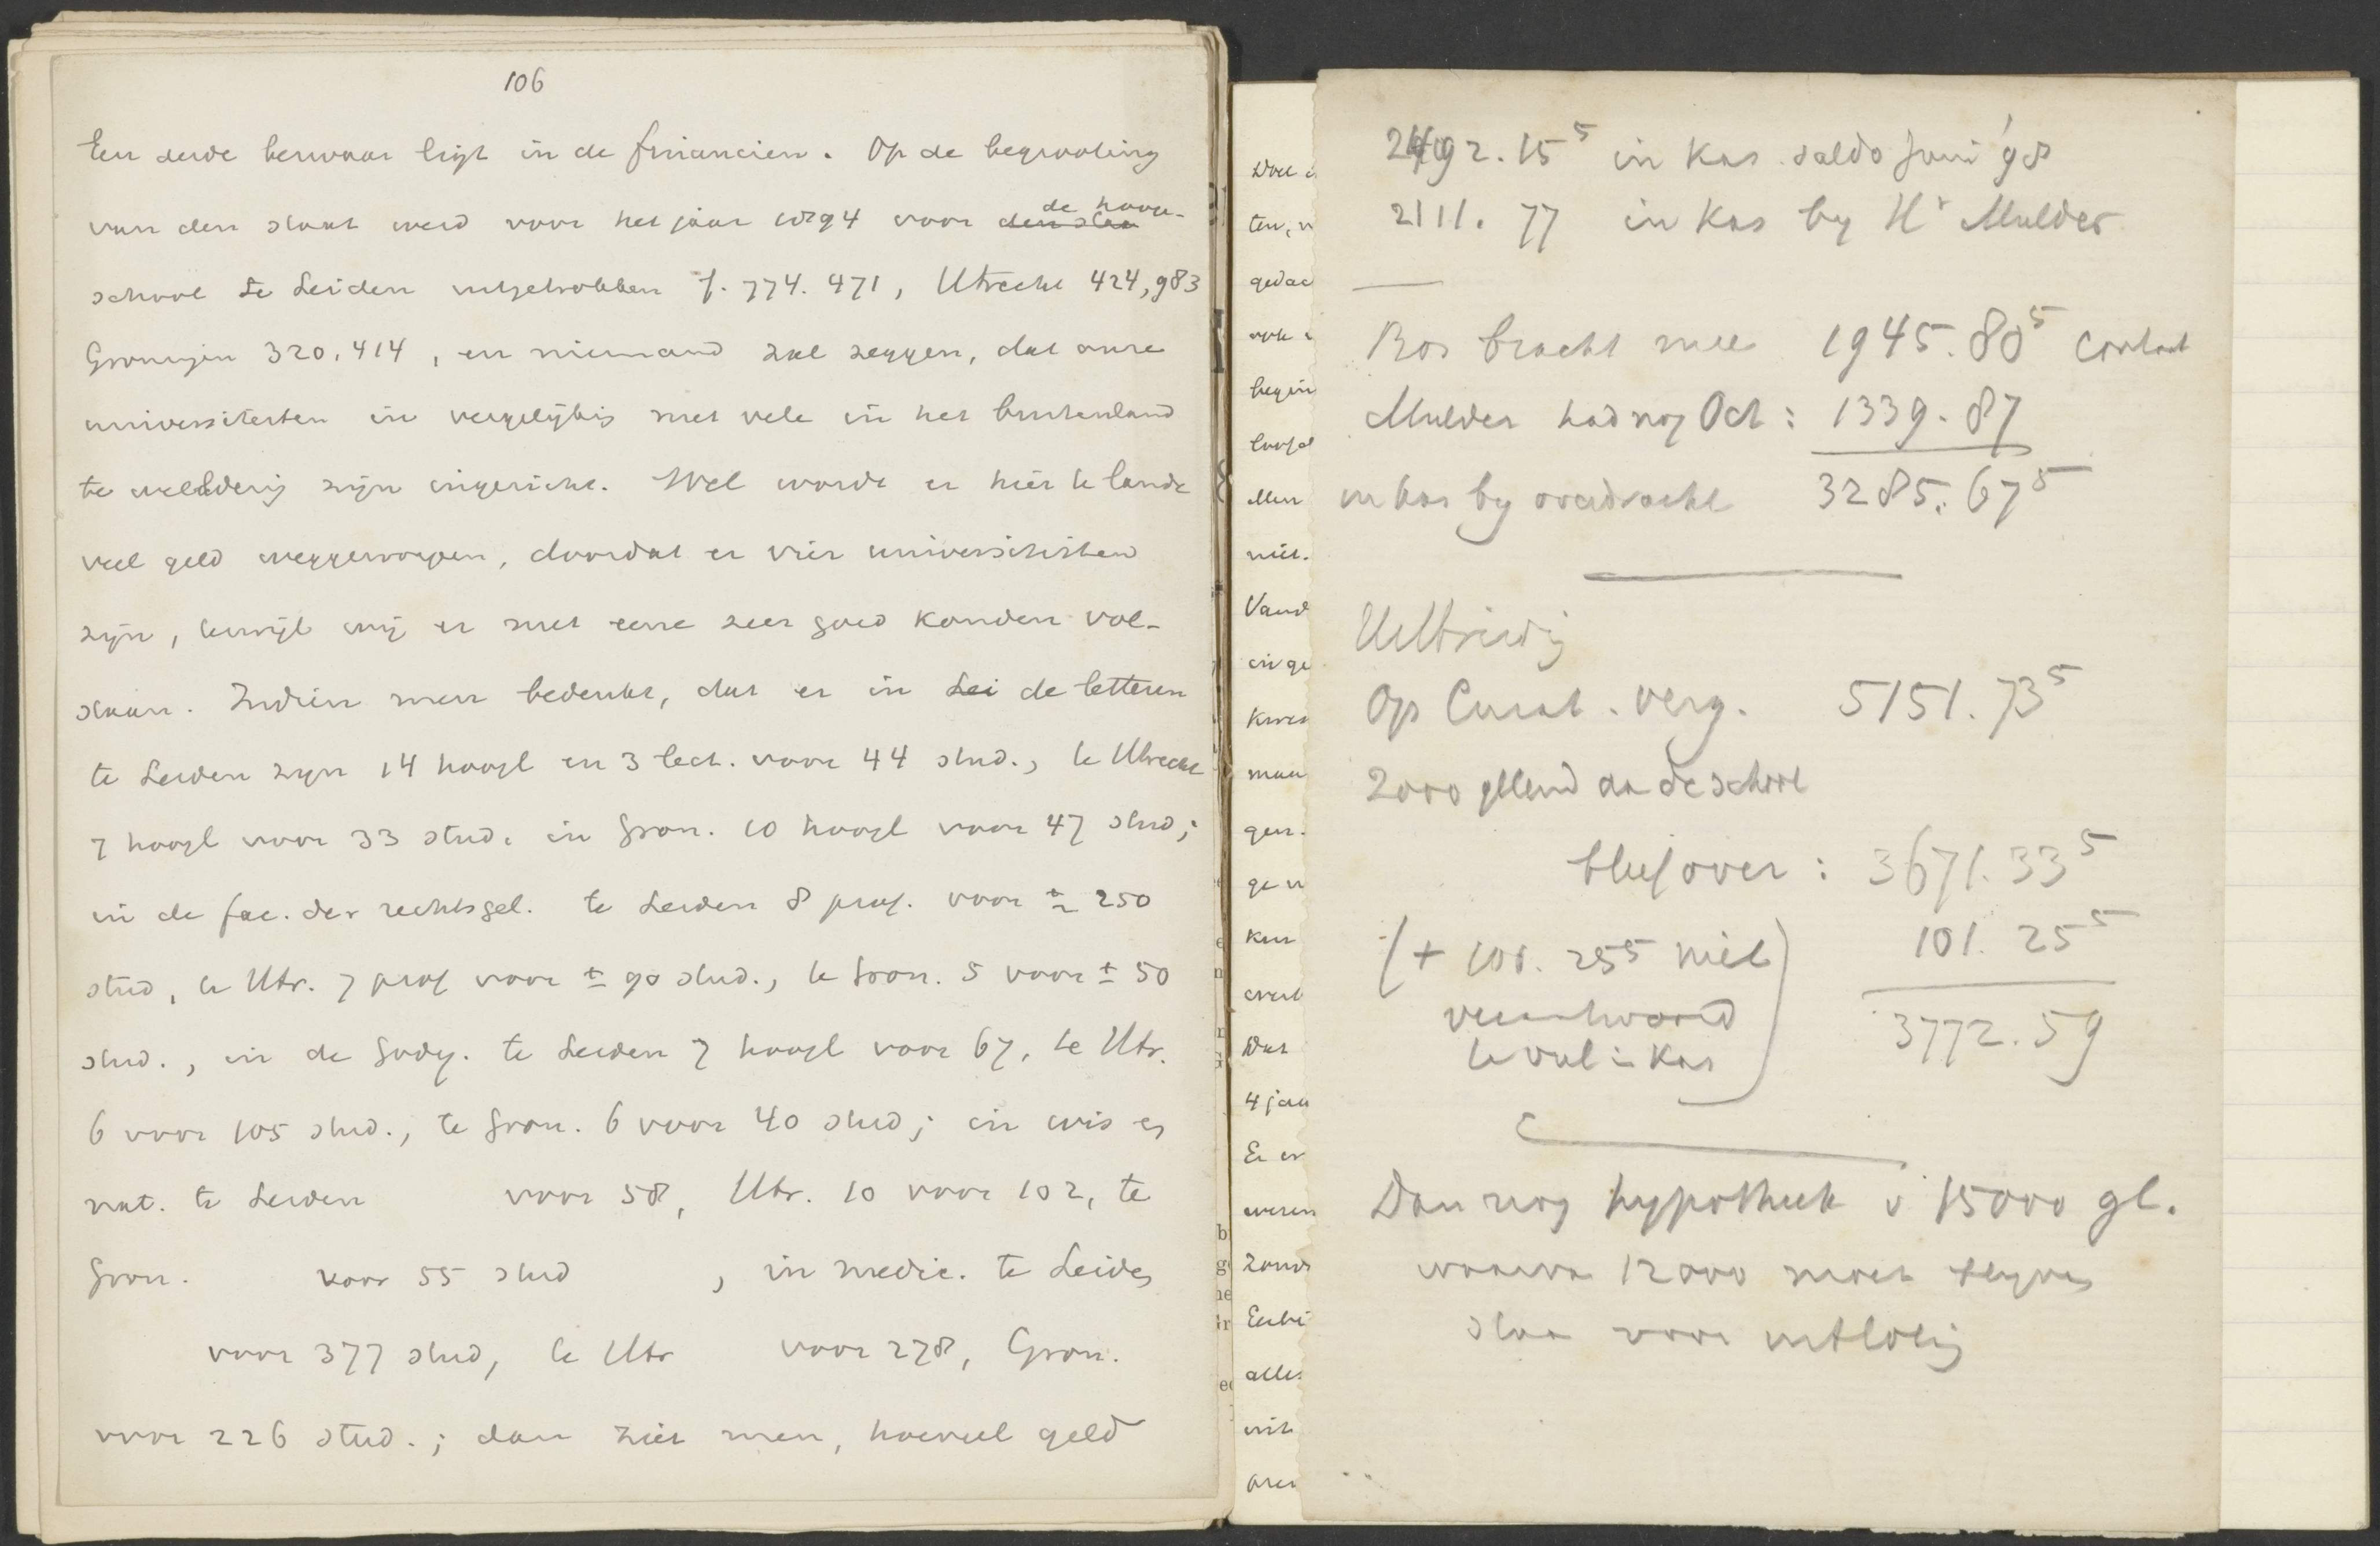 106
Een derde bezwaar ligt in de financien. Op de begrooting
van den staat werd voor het jaar 1894 voor den staa de hooge-
school te Leiden uitgetrokken f. 774.471, Utrecht 424,983
Groningen 320.414, en niemand zal zeggen, dat onze
universiteiten in vergelijking met vele in het buitenland
te weelderig zijn ingericht. Wel wordt er hier te lande
veel geld weggeworpen, doordat er vier universiteiten
zijn, terwijl wij er met eene zeer goed konden vol-
staan. Indien men bedenkt, dat er in Lei de letteren
te Leiden zijn 14 hoogl en 3 lect. voor 44 stud., te Utrecht
7 hoogl voor 33 stud. in Gron. 10 hoogl voor 47 stud;
in de fac. der rechtsgel. te Leiden 8 prof. voor ± 250
stud, te Utr. 7 prof voor ± 90 stud., te Gron. 5 voor ± 50
stud., in de godg. te Leiden 7 hoogl voor 67, te Utr.
6 voor 105 stud., te Gron. 6 voor 40 stud; in wis en
nat. te Leiden voor 58, Utr. 10 voor 102, te
Gron. voor 55 stud , in medic. te Leiden
voor 377 stud, te Utr voor 278, Gron.
voor 226 stud.; dan ziet men, hoeveel geld
ten,
gedac
begin
Men
niet.
Vand
inge
maa
gen.
Dat
4 jaa
Er
alles
uit
2492.15⁵ in Kas saldo Juni '98
2111.77 in Kas by Hr Mulder
Bos bracht mee 1945.80⁵ contant
Mulder had nog Oct: 1339.87
in kas by overdracht 3285.67⁵
Op Curat. verg. 5151.73⁵
2000 geleend aan de school
bleef over: 3671.33⁵
(+ 101.25⁵ niet 101.25⁵
verantwoord
te veel in Kas) 3772.59
Dan nog hypotheek v 15000 gl.
waarvan 12000 moet blijven
staan voor uitloting